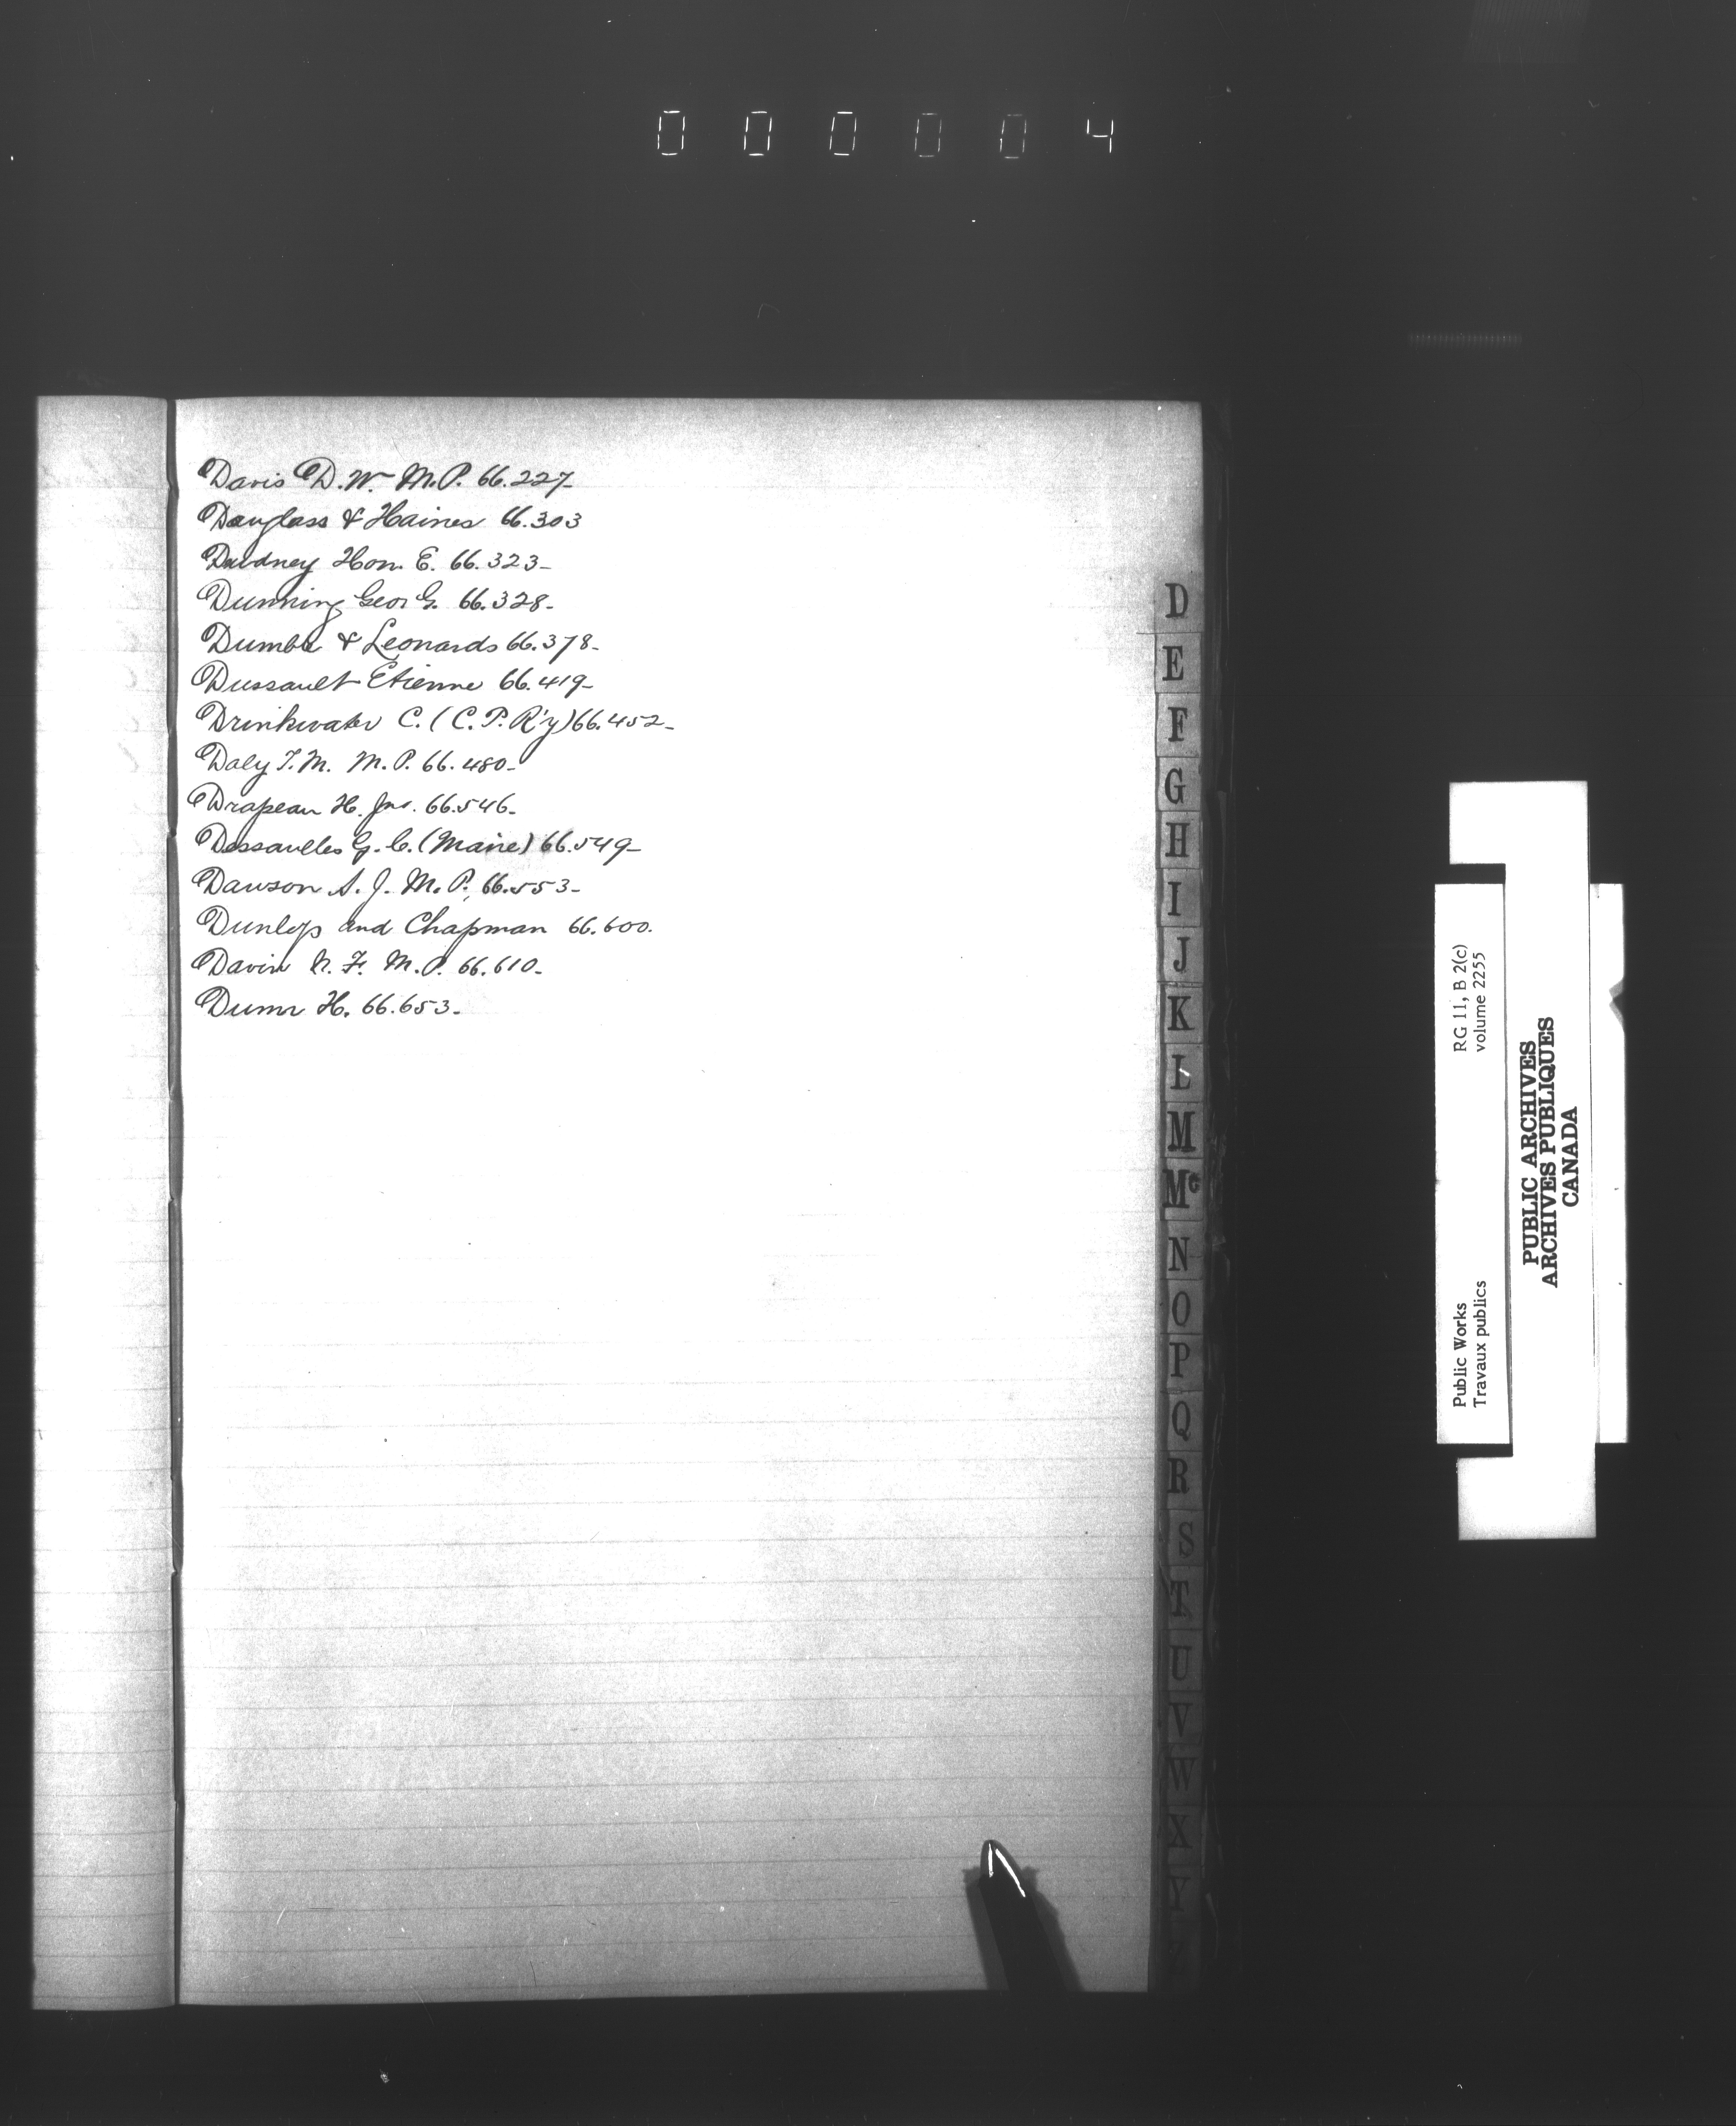 000004
Davis D.W. M.P. 66.227-
Douglass & Haines 66.303
Dewdney Hon. E. 66.323-
Dunning Geo. G. 66.328-
Dumble & Leonards 66.378-
Dussault Etienne 66.419-
Drinkwater C. (C.P. R'y) 66.452-
Daly T.M. M.P. 66.480-
Drapeau H. Jnr. 66.546-
Dessaulles G.C. (Maire) 66.549-
Dawson S.J. M.P. 66.553-
Dunlop and Chapman 66.600.
Davin N.F. M.P. 66.610-
H. 66.653-
D
E
F
G
H
I
J
K
L
M
Mc
N
O
P
Q
R
S
T
U
V
W
X
Y
Z
Public Works RG 11, B 2(c)
Travaux publics volume 2255
PUBLIC ARCHIVES
ARCHIVES PUBLIQUES
CANADA